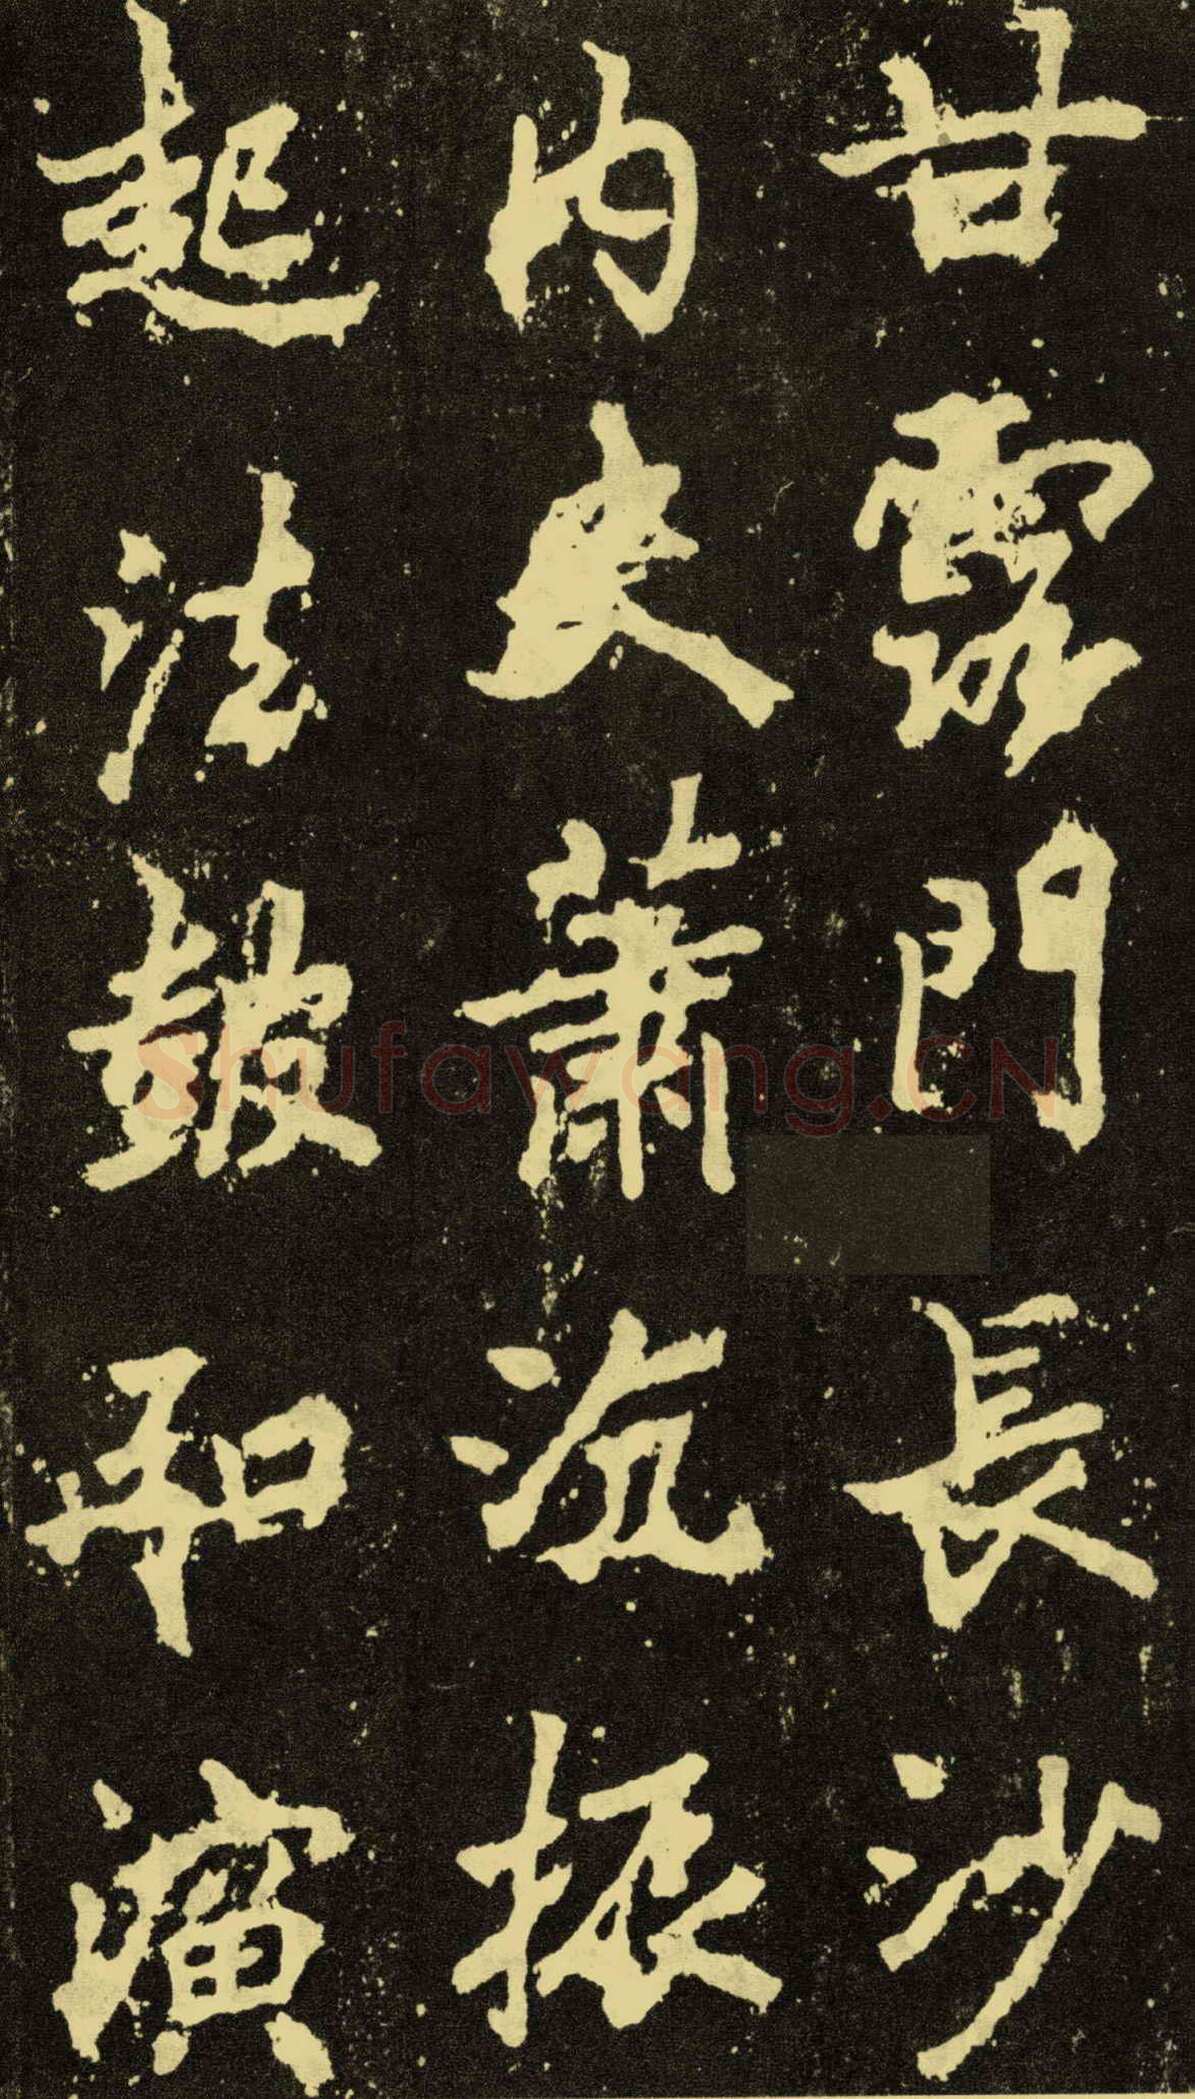 甘露門長沙
内史蕭沉振
起法鼓和演
Shufawang.CN